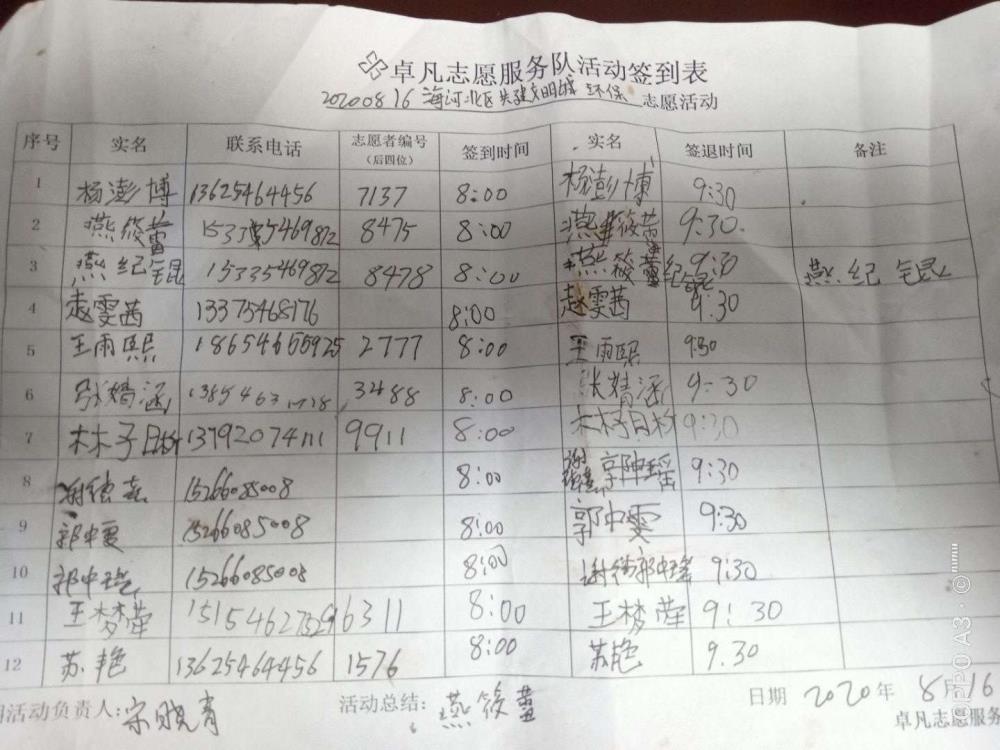 卓凡志愿服务队活动签到表
20200816 海河北区共建文明城 环保 志愿活动
序号 实名 联系电话 志愿者编号（后四位） 签到时间 实名 签退时间 备注
1 杨澎博 13625464456 7137 8:00 杨澎博 9:30
2 燕筱蕾 8475 8:00 燕筱蕾 9:30
3 燕纪锟 15335469812 8478 8:00 燕 纪锟 9:30 燕纪锟
4 赵雯茜 13375468176 8:00 赵雯茜 9:30
5 王雨熙 18654655925 2777 8:00 王雨熙 9:30
6 张婧涵 3488 8:00 张婧涵 9:30
7 林子日 13792074111 9911 8:00 林子日 9:30
8 谢德 15266085008 8:00 9:30
9 郭中雯 15266085008 8:00 郭中雯 9:30
10 郭中瑶 15266085008 8:00 郭中瑶 9:30
11 王梦莹 15154627329 6311 8:00 王梦莹 9:30
12 苏艳 13625464456 1576 8:00 苏艳 9.30
活动负责人:宋晓青 活动总结: 燕筱蕾 日期 2020年 8月16
卓凡志愿服务
OPPO A3 · ©